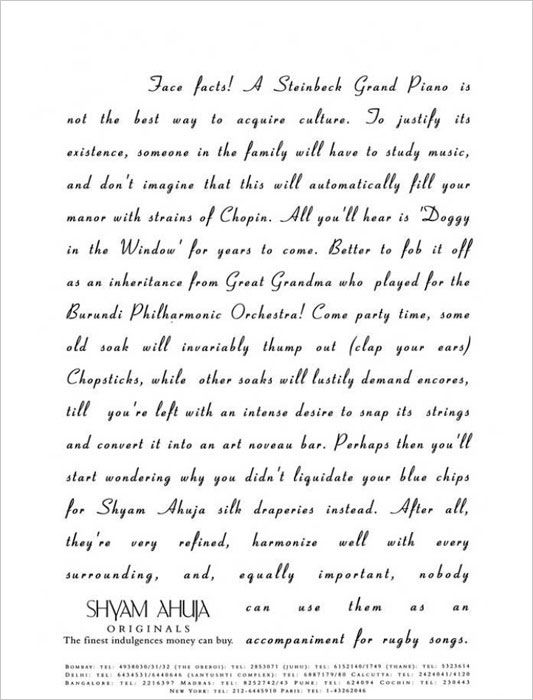 Face facts! A Steinbeck Grand Piano is
not the best way to acquire culture. To justify its
existence, someone in the family will have to study music,
and don't imagine that this will automatically fill your
manor with strains of Chopin. All you'll hear is 'Doggy
in the Window' for years to come. Better to fob it off
as an inheritance from Great Grandma who played for the
Burundi Philharmonic Orchestra! Come party time, some
old soak will invariably thump out (clap your ears)
Chopsticks, while other soaks will lustily demand encores,
till you're left with an intense desire to snap its strings
and convert it into an art noveau bar. Perhaps then you'll
start wondering why you didn't liquidate your blue chips
for Shyam Ahuja silk draperies instead. After all,
they're very refined, harmonize well with every
surrounding, and, equally important, nobody
can use them as an
accompaniment for rugby songs.
SHYAM AHUJA
ORIGINALS
The finest indulgences money can buy.
BOMBAY: TEL: 4938030/31/32 (THE OBEROI): TEL: 2853071 (JUHU): TEL: 6152140/5749 (THANE): TEL: 5323614
DELHI: TEL: 6434531/6448646 (SANTUSHTI COMPLEX): TEL: 6887179/80 CALCUTTA: TEL: 2424041/4120
BANGALORE: TEL: 2216397 MADRAS: TEL: 8252742/43 PUNE: TEL: 624094 COCHIN: TEL: 230443
NEW YORK: TEL: 212-6445910 PARIS: TEL: 1-43262046